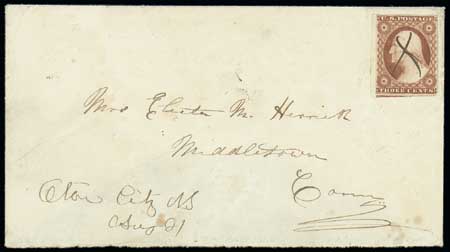 U.S. POSTAGE
THREE CENTS
Mrs Electa M. Herrick
Middletown
Conn
City
Aug 21